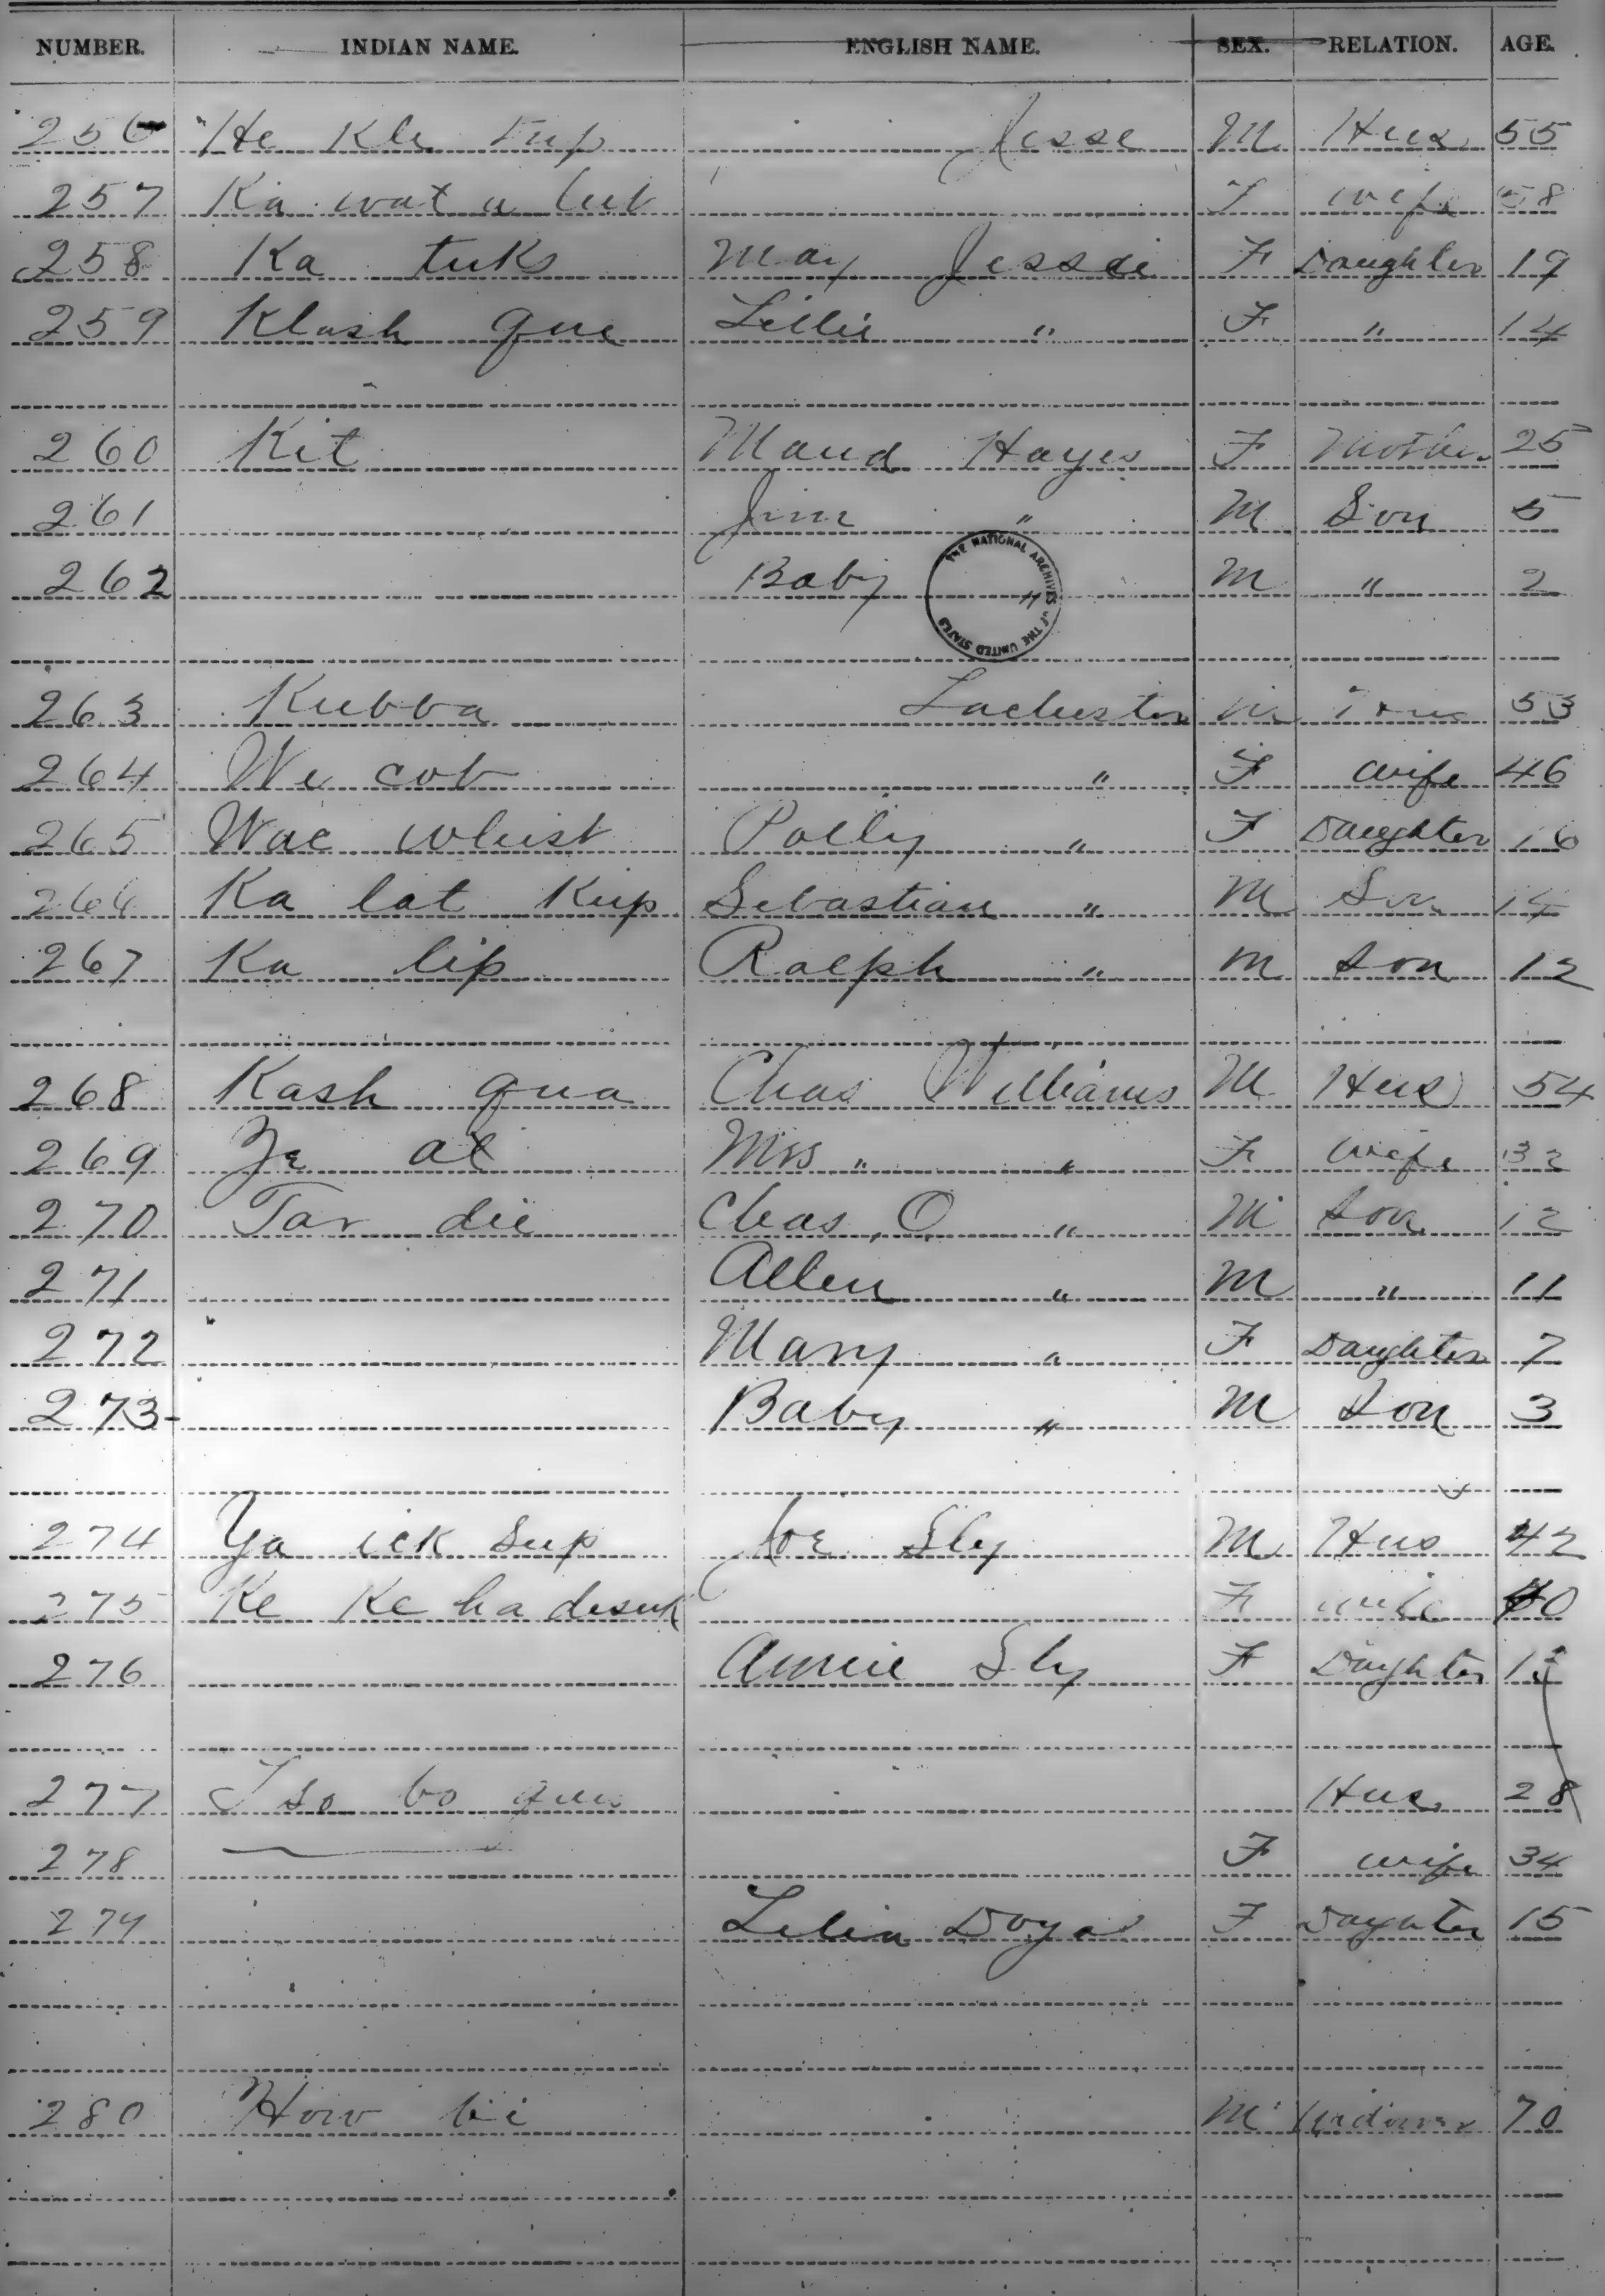 NUMBER. INDIAN NAME. ENGLISH NAME. SEX. RELATION. AGE.
256 He Kle tup Jesse M Hus 55
257 Ka wat a lub F wife 58
258 Ka tuks May Jessie F Daughter 19
259 Klash que Lillie " F " 14
260 Kit Maud Hayes F Mother 25
261 Jim " M Son 5
262 Baby " M " 2
THE NATIONAL ARCHIVES OF THE UNITED STATES
263 Kubba Lachester M 53
264 We cob " F wife 46
265 Wac whist Polly " F Daughter 16
266 Ka lat Kup Sebastian " M Son 14
267 Ka lip Ralph " M Son 12
268 Kash qua Chas Williams M Hus 54
269 Ye at Mrs " " F wife 32
270 Tar die Chas. O " M Son 12
271 Allen " M " 11
272 Mary " F Daughter 7
273 Baby " M Son 3
274 Ya ick sup Joe Sly M Hus 42
275 Ke Ke ha desuk F wife 40
276 Annie Sly F Daughter
277 I so bo Hus 28
278 F wife 34
279 Lelia Doya F Daughter 15
280 How be M 70